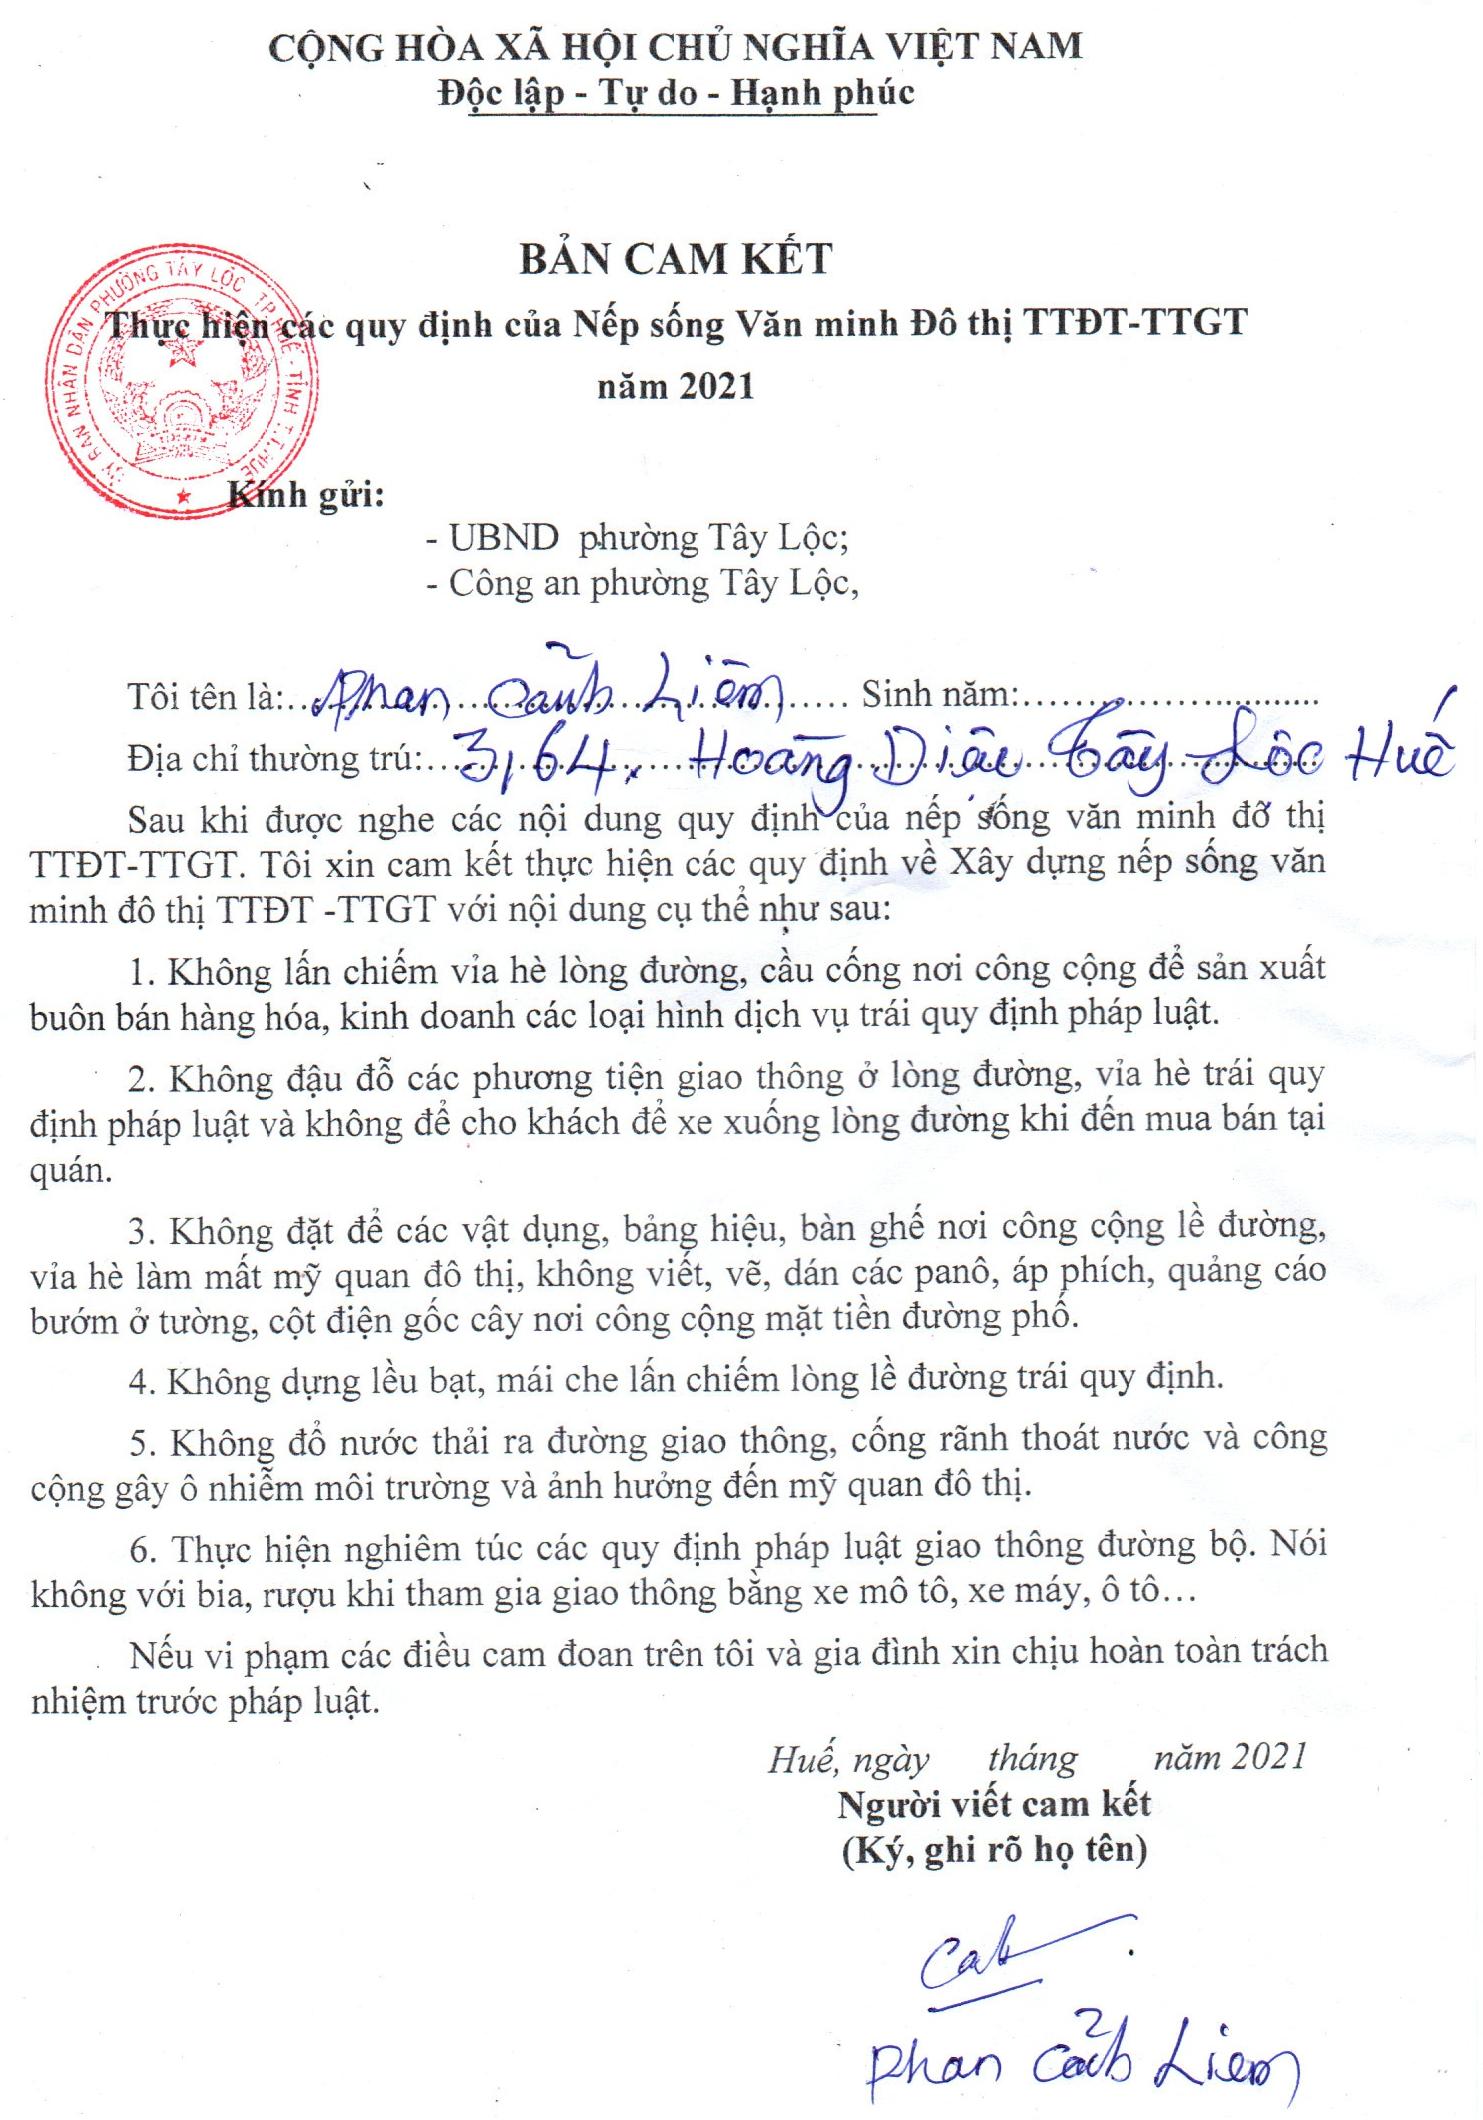 CỘNG HÒA XÃ HỘI CHỦ NGHĨA VIỆT NAM
Độc lập - Tự do - Hạnh phúc
BẢN CAM KẾT
Thực hiện các quy định của Nếp sống Văn minh Đô thị TTĐT-TTGT
năm 2021
ỦY BAN NHÂN DÂN PHƯỜNG TÂY LỘC TP.HUẾ - TỈNH T.T.HUẾ
Kính gửi:
- UBND phường Tây Lộc;
- Công an phường Tây Lộc,
Tôi tên là: Phan Cảnh Liêm Sinh năm:
Địa chỉ thường trú: 3,64. Hoàng Diệu Tây Lộc Huế
Sau khi được nghe các nội dung quy định của nếp sống văn minh đô thị
TTĐT-TTGT. Tôi xin cam kết thực hiện các quy định về Xây dựng nếp sống văn
minh đô thị TTĐT -TTGT với nội dung cụ thể như sau:
1. Không lấn chiếm vỉa hè lòng đường, cầu cống nơi công cộng để sản xuất
buôn bán hàng hóa, kinh doanh các loại hình dịch vụ trái quy định pháp luật.
2. Không đậu đỗ các phương tiện giao thông ở lòng đường, vỉa hè trái quy
định pháp luật và không để cho khách để xe xuống lòng đường khi đến mua bán tại
quán.
3. Không đặt để các vật dụng, bảng hiệu, bàn ghế nơi công cộng lề đường,
vỉa hè làm mất mỹ quan đô thị, không viết, vẽ, dán các panô, áp phích, quảng cáo
bướm ở tường, cột điện gốc cây nơi công cộng mặt tiền đường phố.
4. Không dựng lều bạt, mái che lấn chiếm lòng lề đường trái quy định.
5. Không đổ nước thải ra đường giao thông, cống rãnh thoát nước và công
cộng gây ô nhiễm môi trường và ảnh hưởng đến mỹ quan đô thị.
6. Thực hiện nghiêm túc các quy định pháp luật giao thông đường bộ. Nói
không với bia, rượu khi tham gia giao thông bằng xe mô tô, xe máy, ô tô…
Nếu vi phạm các điều cam đoan trên tôi và gia đình xin chịu hoàn toàn trách
nhiệm trước pháp luật.
Huế, ngày tháng năm 2021
Người viết cam kết
(Ký, ghi rõ họ tên)
Phan Cảnh Liem